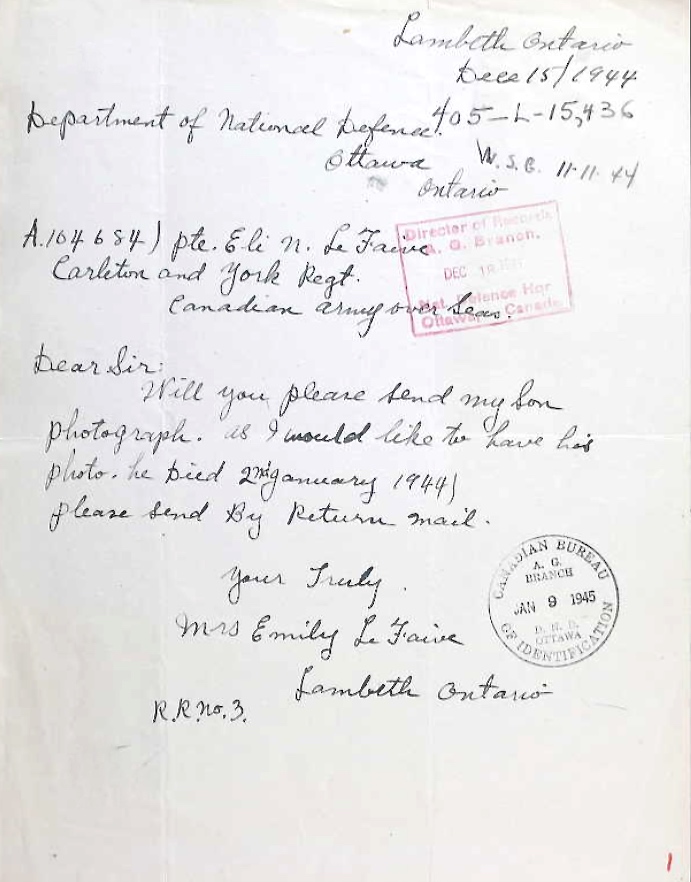 Lambeth Ontario
Dece 15/1944
405-L-15,436
Department of National Defence.
Ottawa
W.S.G. 11-11-44
Ontario
A.164684) pte. Eli N. Le Faive
Carleton and York Regt.
Canadian army over Seas.
Director of Records
A. G. Branch.
DEC 18
Nat. Defence Hqr
Ottawa, Canada
Dear Sir:
Will you please send my Son
photograph. as I would like to have his
photo. he Died 2nd January 1944)
please send By Return mail.
Your Truly.
Mrs Emily Le Faive
Lambeth Ontario
R.R.No.3.
CANADIAN BUREAU
A. G.
BRANCH
JAN 9 1945
D. N. D.
OTTAWA
OF IDENTIFICATION
1